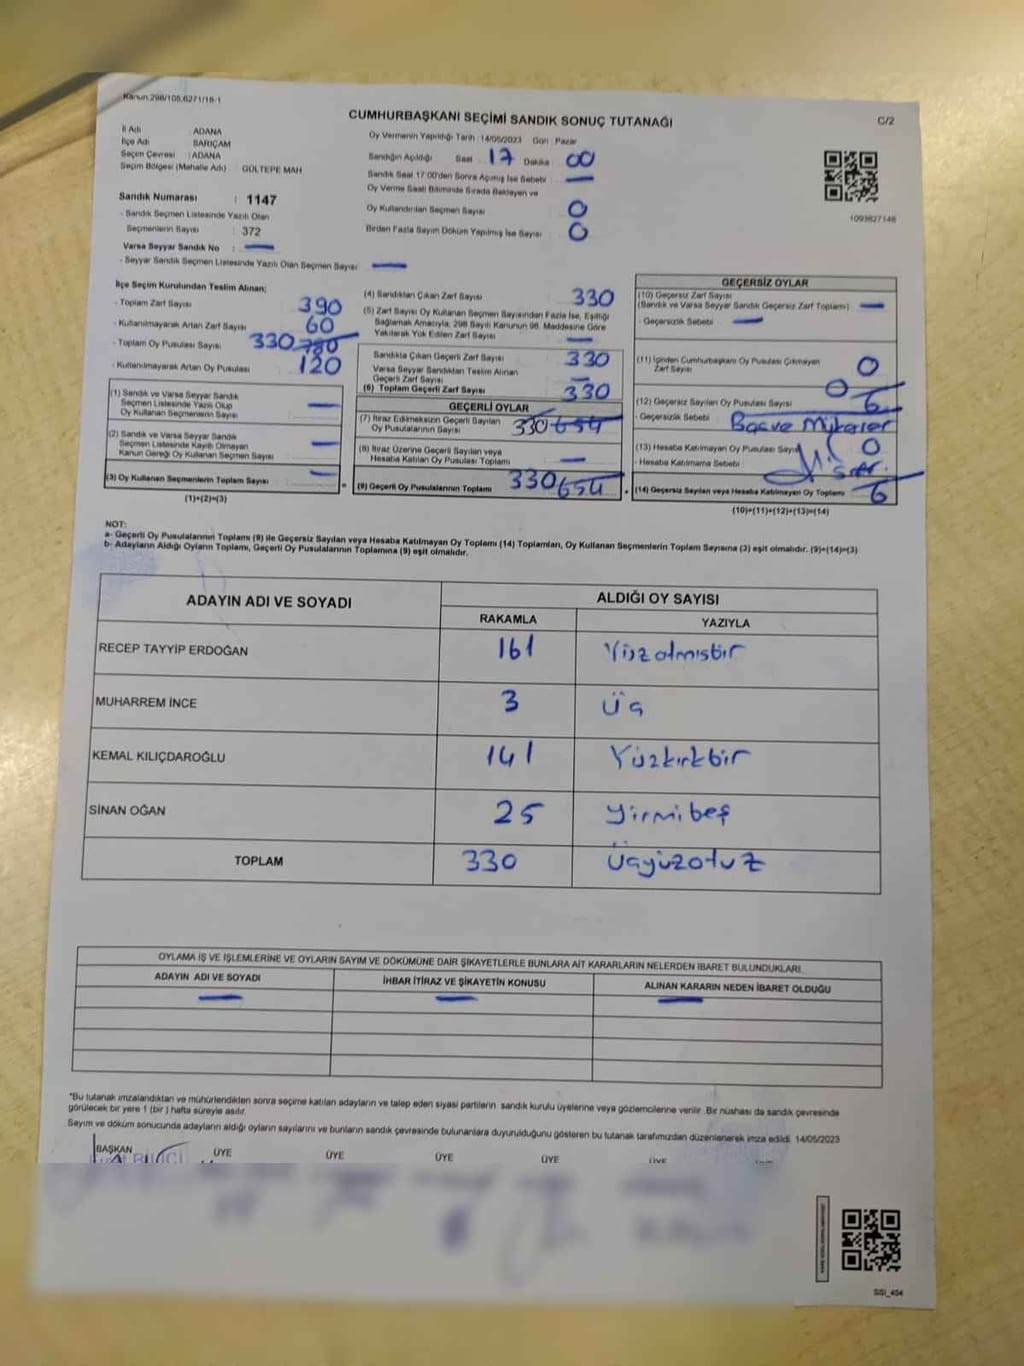 Kanun.298/105,6271/16-1
CUMHURBAŞKANI SEÇİMİ SANDIK SONUÇ TUTANAĞI
C/2
İl Adı ADANA
İlçe Adı SARIÇAM
Seçim Çevresi : ADANA
Seçim Bölgesi (Mahalle Adı) GÜLTEPE MAH
Oy Vermenin Yapıldığı Tarih : 14/05/2023 Gün : Pazar
Sandığın Açıldığı Saat 17 Dakika : 00
Sandık Saat 17:00'den Sonra Açılmış İse Sebebi : —
Oy Verme Saati Bitiminde Sırada Bekleyen ve
Oy Kullandırılan Seçmen Sayısı : 0
Birden Fazla Sayım Döküm Yapılmış İse Sayısı : 0
1093827148
Sandık Numarası : 1147
- Sandık Seçmen Listesinde Yazılı Olan
Seçmenlerin Sayısı : 372
Varsa Seyyar Sandık No : —
- Seyyar Sandık Seçmen Listesinde Yazılı Olan Seçmen Sayısı : —
İlçe Seçim Kurulundan Teslim Alınan;
- Toplam Zarf Sayısı 390
- Kullanılmayarak Artan Zarf Sayısı 60
- Toplam Oy Pusulası Sayısı 330 780
- Kullanılmayarak Artan Oy Pusulası 120
(1) Sandık ve Varsa Seyyar Sandık
Seçmen Listesinde Yazılı Olup
Oy Kullanan Seçmenlerin Sayısı —
(2) Sandık ve Varsa Seyyar Sandık
Seçmen Listesinde Kayıtlı Olmayan
Kanun Gereği Oy Kullanan Seçmen Sayısı —
(3) Oy Kullanan Seçmenlerin Toplam Sayısı —
(1)+(2)=(3)
(4) Sandıktan Çıkan Zarf Sayısı 330
(5) Zarf Sayısı Oy Kullanan Seçmen Sayısından Fazla İse, Eşitliği
Sağlamak Amacıyla, 298 Sayılı Kanunun 98. Maddesine Göre
Yakılarak Yok Edilen Zarf Sayısı : —
Sandıkta Çıkan Geçerli Zarf Sayısı 330
Varsa Seyyar Sandıktan Teslim Alınan
Geçerli Zarf Sayısı —
(6) Toplam Geçerli Zarf Sayısı 330
GEÇERLİ OYLAR
(7) İtiraz Edilmeksizin Geçerli Sayılan
Oy Pusulalarının Sayısı 330 654
(8) İtiraz Üzerine Geçerli Sayılan veya
Hesaba Katılan Oy Pusulası Toplamı —
(9) Geçerli Oy Pusulalarının Toplamı 330 654
GEÇERSİZ OYLAR
(10) Geçersiz Zarf Sayısı
(Sandık ve Varsa Seyyar Sandık Geçersiz Zarf Toplamı) : —
- Geçersizlik Sebebi : —
(11) İçinden Cumhurbaşkanı Oy Pusulası Çıkmayan
Zarf Sayısı 0
(12) Geçersiz Sayılan Oy Pusulası Sayısı 0 6
- Geçersizlik Sebebi :
(13) Hesaba Katılmayan Oy Pusulası Sayısı 0
- Hesaba Katılmama Sebebi :
(14) Geçersiz Sayılan veya Hesaba Katılmayan Oy Toplamı 6
(10)+(11)+(12)+(13)=(14)
NOT:
a- Geçerli Oy Pusulalarının Toplamı (9) ile Geçersiz Sayılan veya Hesaba Katılmayan Oy Toplamı (14) Toplamları, Oy Kullanan Seçmenlerin Toplam Sayısına (3) eşit olmalıdır. (9)+(14)=(3)
b- Adayların Aldığı Oyların Toplamı, Geçerli Oy Pusulalarının Toplamına (9) eşit olmalıdır.
ADAYIN ADI VE SOYADI
ALDIĞI OY SAYISI
RAKAMLA YAZIYLA
RECEP TAYYİP ERDOĞAN 161 Yüzatmışbir
MUHARREM İNCE 3 Üç
KEMAL KILIÇDAROĞLU 141 Yüzkırkbir
SİNAN OĞAN 25 yirmibeş
TOPLAM 330 Üçyüzotuz
OYLAMA İŞ VE İŞLEMLERİNE VE OYLARIN SAYIM VE DÖKÜMÜNE DAİR ŞİKAYETLERLE BUNLARA AİT KARARLARIN NELERDEN İBARET BULUNDUKLARI
ADAYIN ADI VE SOYADI İHBAR İTİRAZ VE ŞİKAYETİN KONUSU ALINAN KARARIN NEDEN İBARET OLDUĞU
— — —
*Bu tutanak imzalandıktan ve mühürlendikten sonra seçime katılan adayların ve talep eden siyasi partilerin sandık kurulu üyelerine veya gözlemcilerine verilir. Bir nüshası da sandık çevresinde
görülecek bir yere 1 (bir) hafta süreyle asılır.
Sayım ve döküm sonucunda adayların aldığı oyların sayılarını ve bunların sandık çevresinde bulunanlara duyurulduğunu gösteren bu tutanak tarafımızdan düzenlenerek imza edildi. 14/05/2023
BAŞKAN ÜYE ÜYE ÜYE ÜYE ÜYE
SSİ_454